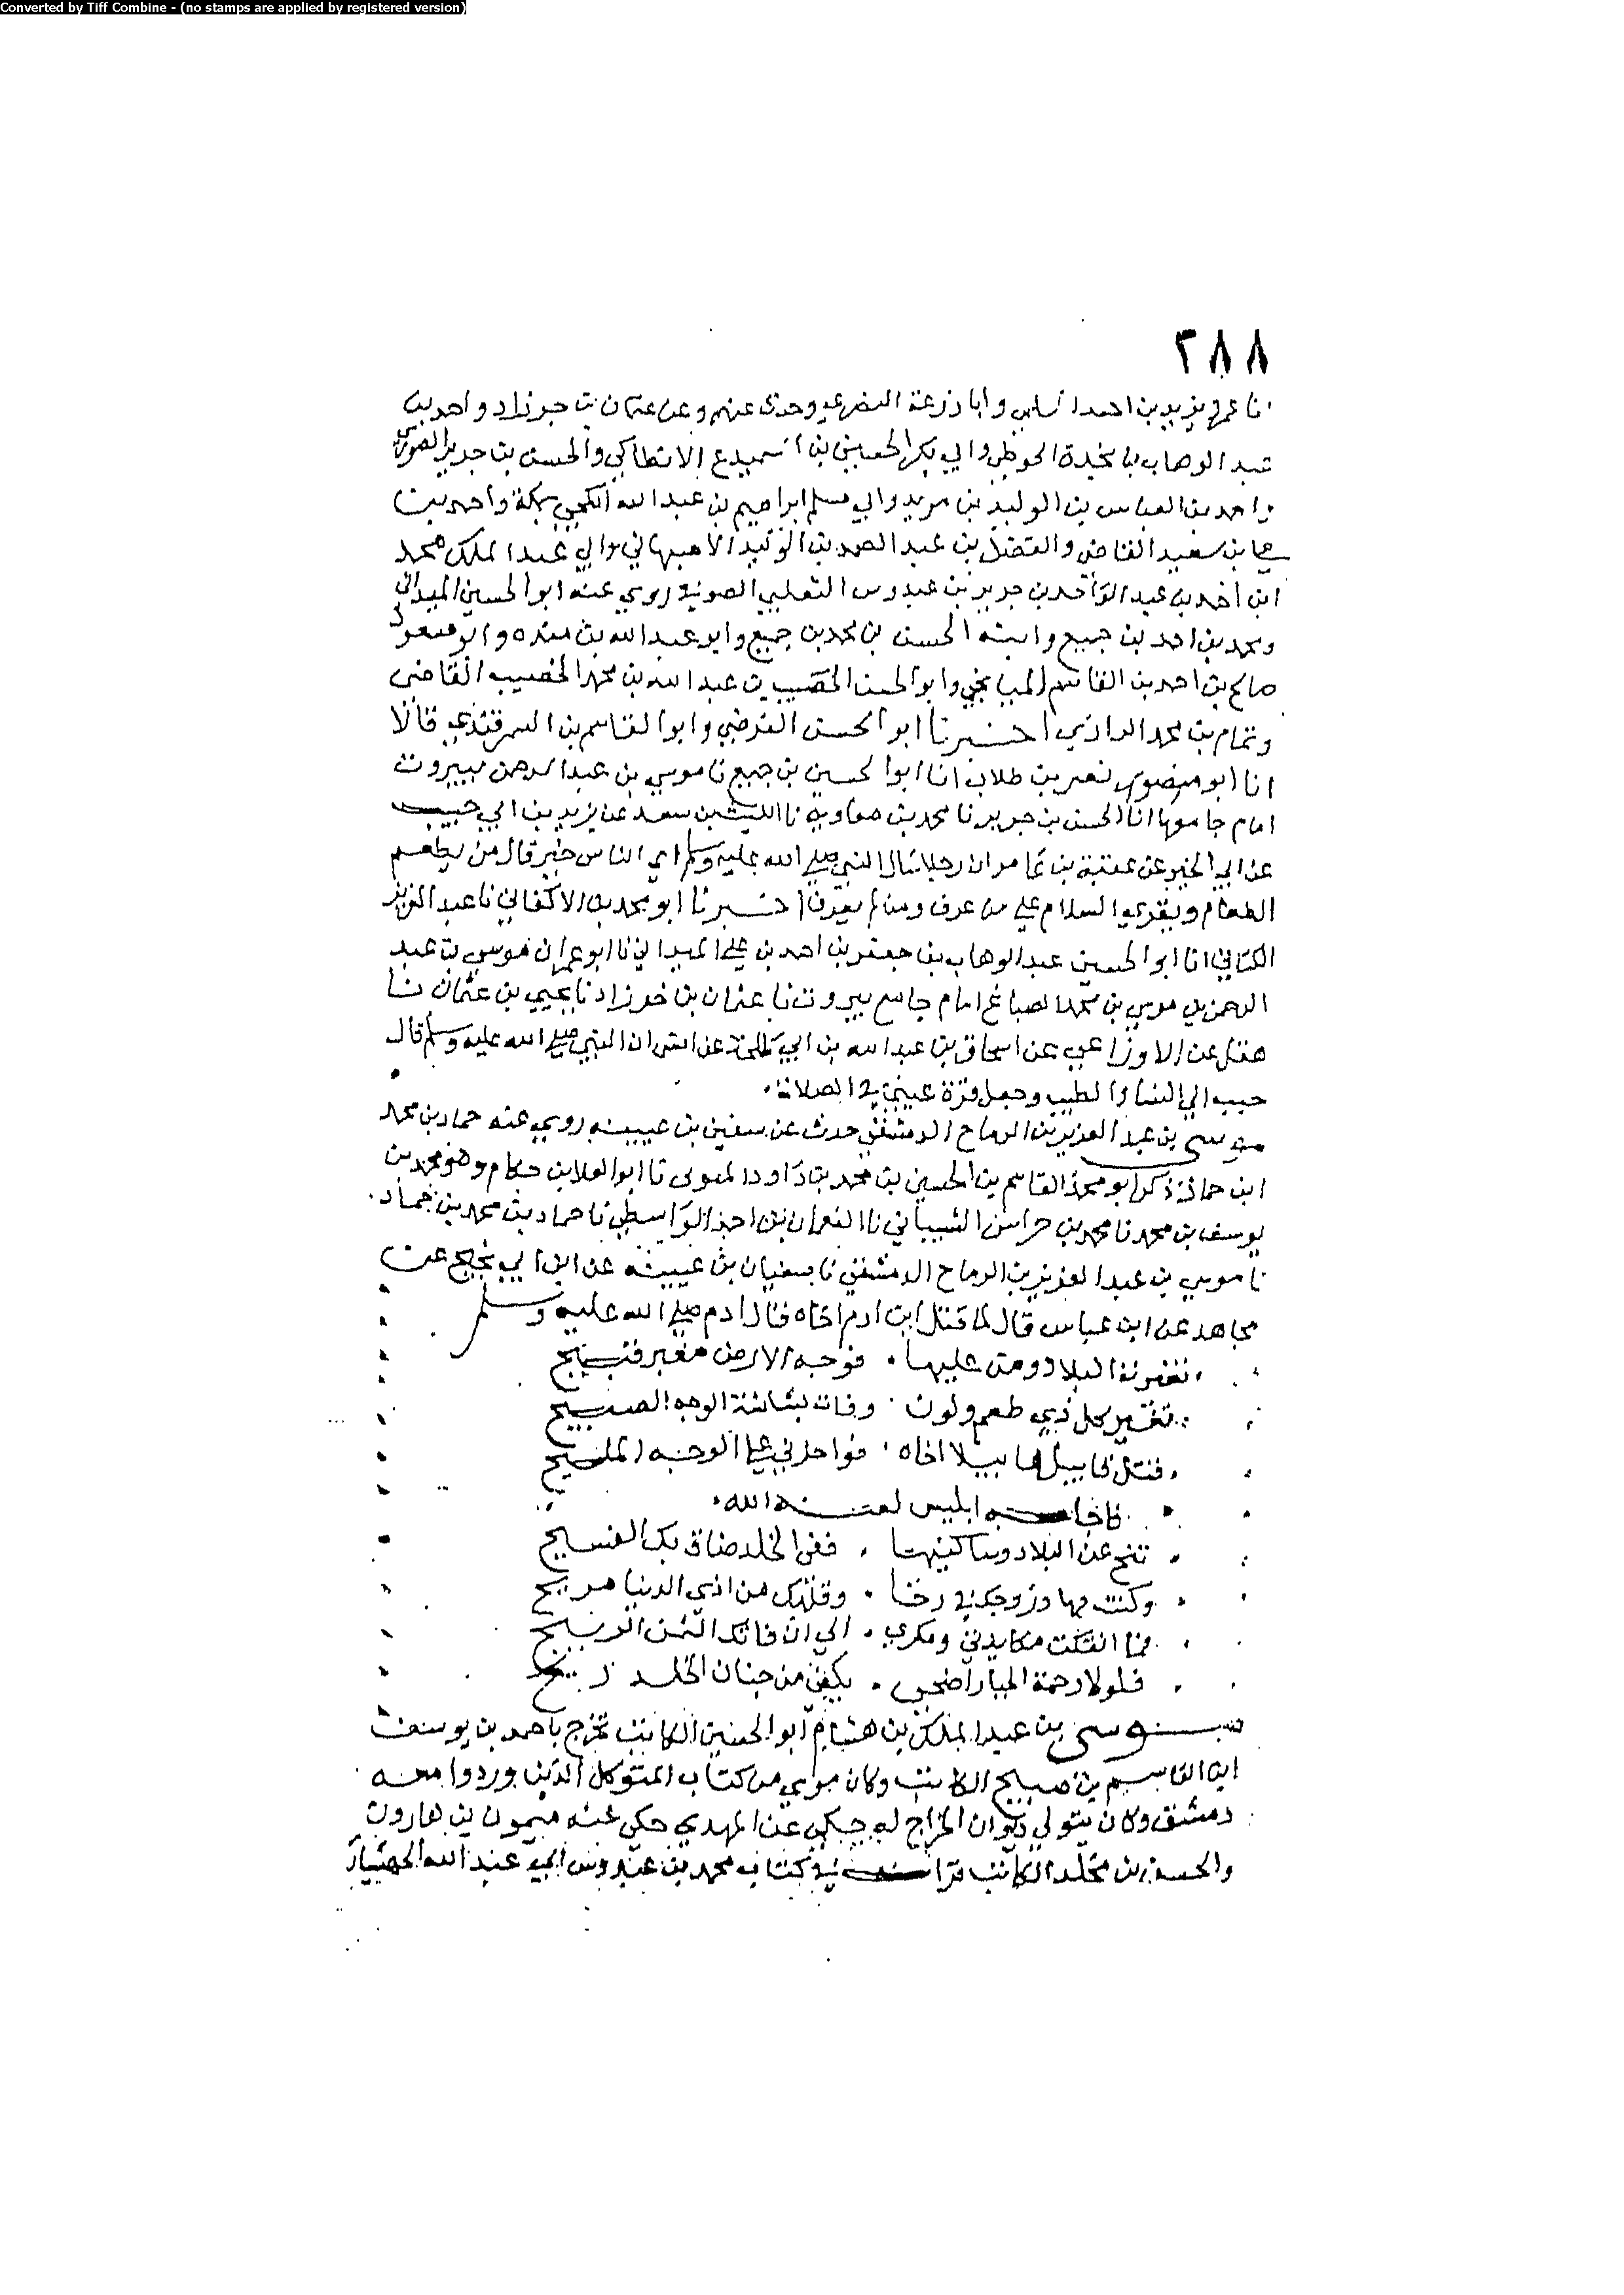 Converted by Tiff Combine - (no stamps are applied by registered version)
٢٨٨
انا عمر يزيد بن احمد السلمي وابا زرعة النصري وحدث عنهم وعن عثمان بن خرزاد واحمد بن
عبد الوهاب بن نجدة الحوطي وابي بكر الحسين بن السميدع الانطاكي والحسن بن جرير الصوري
واحمد بن العباس بن الوليد بن مزيد وابي مسلم ابراهيم بن عبد الله الكجي بمكة واحمد بن
علي بن سعيد القاضي والفضل بن عبد الصمد بن الوليد الاصبهاني وابي عبد الملك محمد
ابن احمد بن عبد الواحد بن جرير بن عبدوس التغلبي الصوني روى عنه ابو الحسين الميداني
ومحمد بن احمد بن جميع وابنه الحسن بن محمد بن جميع وابو عبد الله بن منده وابو مسعود
صالح بن احمد بن القاسم الميانجي وابو الحسن الخصيب بن عبد الله بن محمد الخصيب القاضي
وتمام بن محمد الرازي اخبرنا ابو الحسن الفرضي وابو القاسم بن السمرقندي قالا
انا ابو منصور نصر بن طلاب انا ابو الحسين بن جميع نا موسى بن عبد الرحمن ببيروت
امام جامعها انا الحسن بن جرير نا محمد بن معاوية نا الليث بن سعد عن يزيد بن ابي حبيب
عن ابي الخير عن عقبة بن عامر ان رجلا سال النبي صلى الله عليه وسلم اي الناس خير قال من يطعم
الطعام ويقري السلام على من عرف ومن لم يعرف اخبرنا ابو محمد بن الاكفاني نا عبد العزيز
الكتاني انا ابو الحسين عبد الوهاب بن جعفر بن احمد بن علي الميداني نا ابو عمران موسى بن عبد
الرحمن بن موسى بن محمد الصباغ امام جامع بيروت نا عثمان بن خرزاد نا يحيى بن عثمان نا
هقل عن الاوزاعي عن اسحاق بن عبد الله بن ابي طلحة عن انس ان النبي صلى الله عليه وسلم قال
حبب الي النسا والطيب وجعل قرة عيني في الصلاة.
موسى بن عبد العزيز بن الرماح الدمشقي حدث عن سفين بن عيينه روى عنه حماد بن محمد
ابن حماد ذكر ابو محمد القاسم بن الحسين بن محمد بن داود المنوي نا ابو العلا بن حكام وهو محمد بن
يوسف بن محمد نا محمد بن حراس الشيباني نا النعمان بن احمد الواسطي نا حماد بن محمد بن حماد.
نا موسى بن عبد العزيز بن الرماح الدمشقي نا سفيان بن عيينه عن ابن ابي نجيح عن
مجاهد عن ابن عباس قال لما قتل ابن ادم اخاه قال ادم صلى الله عليه وسلم
تغيرت البلاد ومن عليها . فوجه الارض مغبر قبيح
تغير كل ذي طعم ولون . وفات بشاشة الوجه الصبيح
فقتل قابيل هابيلا اخاه . فواحزني على الوجه المليح
فاجابه ابليس لعنه الله.
تنح عن البلاد وساكنيها . ففي الخلد ضاق بك الفسيح
وكنت بها وزوجك في رخا . وقلبك من اذى الدنيا مريح
فما انفكت مكايدتي ومكري . الى ان فاتك الثمن الربيح
فلولا رحمة الجبار اضحى . بكفي من جنان الخلد ريح
موسى بن عبد الملك بن هشام ابو الحسين الكاتب تخرج باحمد بن يوسف
ابن القاسم بن صبيح الكاتب وكان موسى من كتاب المتوكل الذين وردوا معه
دمشق وكان يتولى ديوان الخراج له حكى عن المهدي حكى عنه ميمون بن هارون
والحسن بن مخلد الكاتب قرات في كتاب محمد بن عبدوس ابي عبد الله الجهشياري